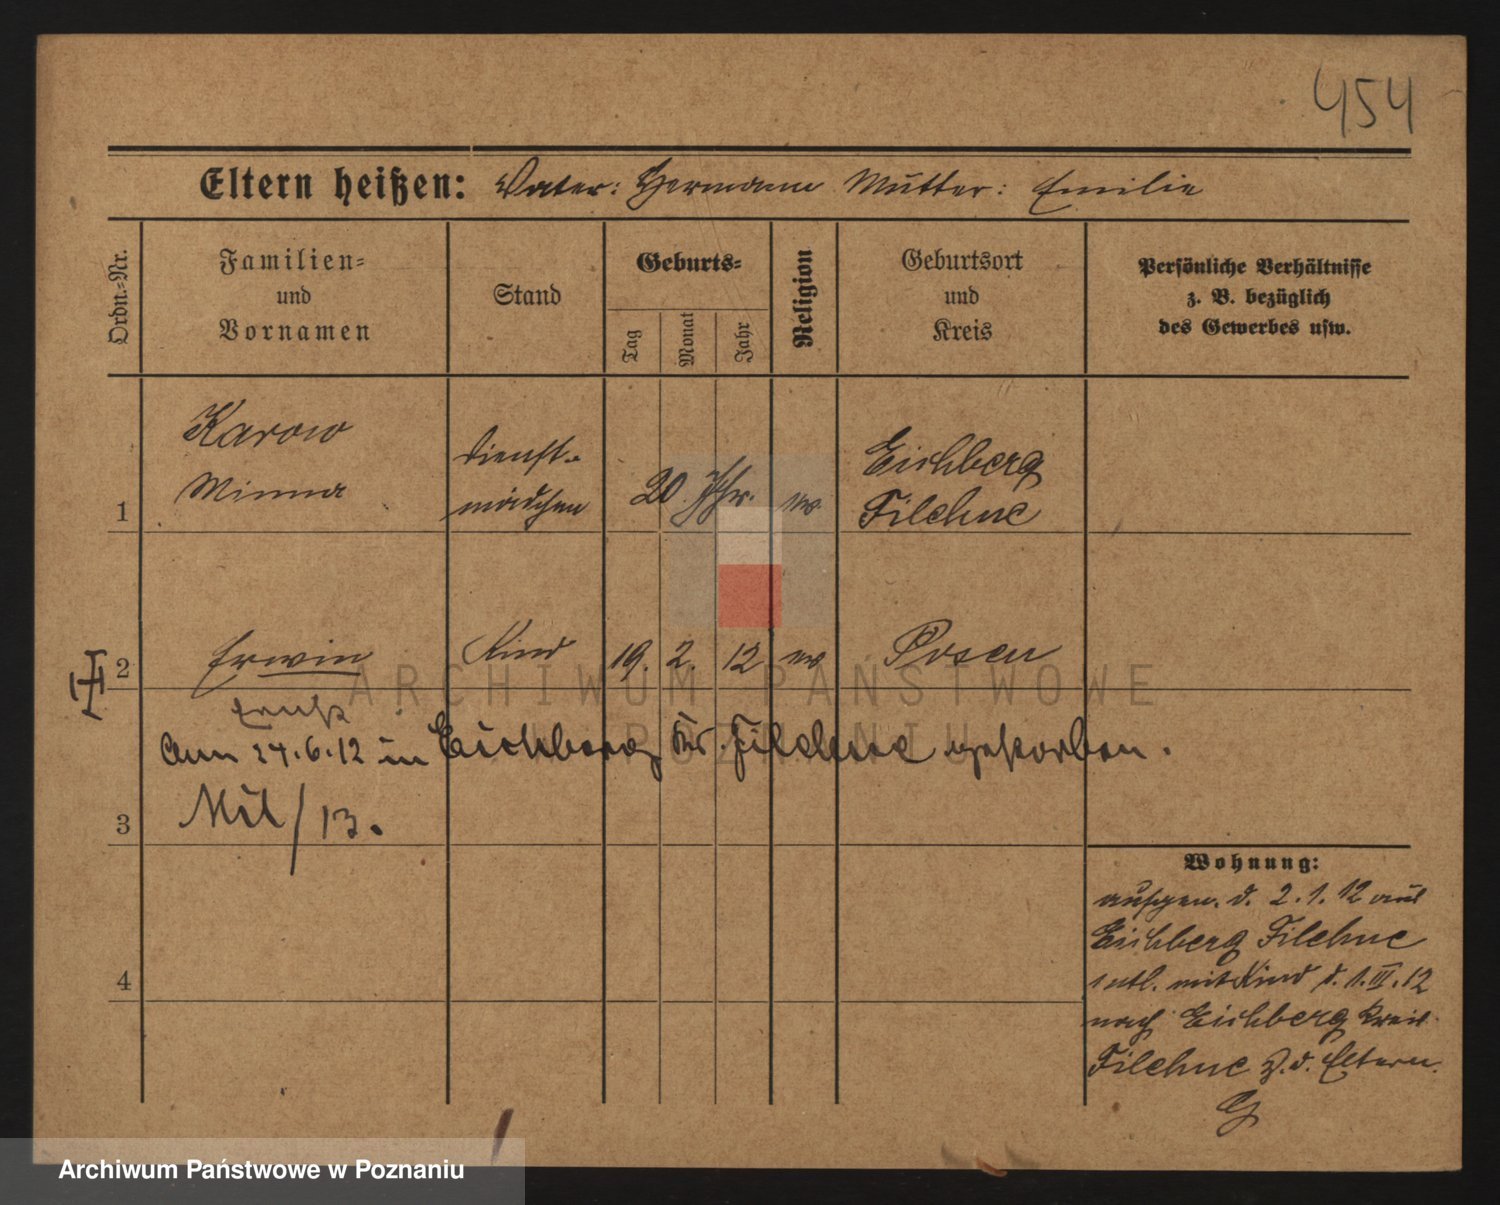 454
Eltern heißen: Vater: Hermann Mutter: Emilie
Ordn.-Nr.
Familien-
und
Vornamen
Stand
Geburts-
Tag
Monat
Jahr
Religion
Geburtsort
und
Kreis
Persönliche Verhältnisse
z. B. bezüglich
des Gewerbes usw.
1
Karow
Minna
Dienst-
mädchen
20 Jhr.
ev
Eichberg
Filehne
2
Erwin
Kind
19. 2. 12
ev
Posen
ARCHIWUM PAŃSTWOWE
W POZNANIU
Ernst
Am 24.6.12 in Eichberg Kr. Filehne gestorben.
3
Mil/13.
4
Wohnung:
aufgen. d. 2.1.12 aus
Eichberg Filehne
entl. mit Kind d. 1.III.12
nach Eichberg Kreis
Filehne z. d. Eltern.
G
Archiwum Państwowe w Poznaniu